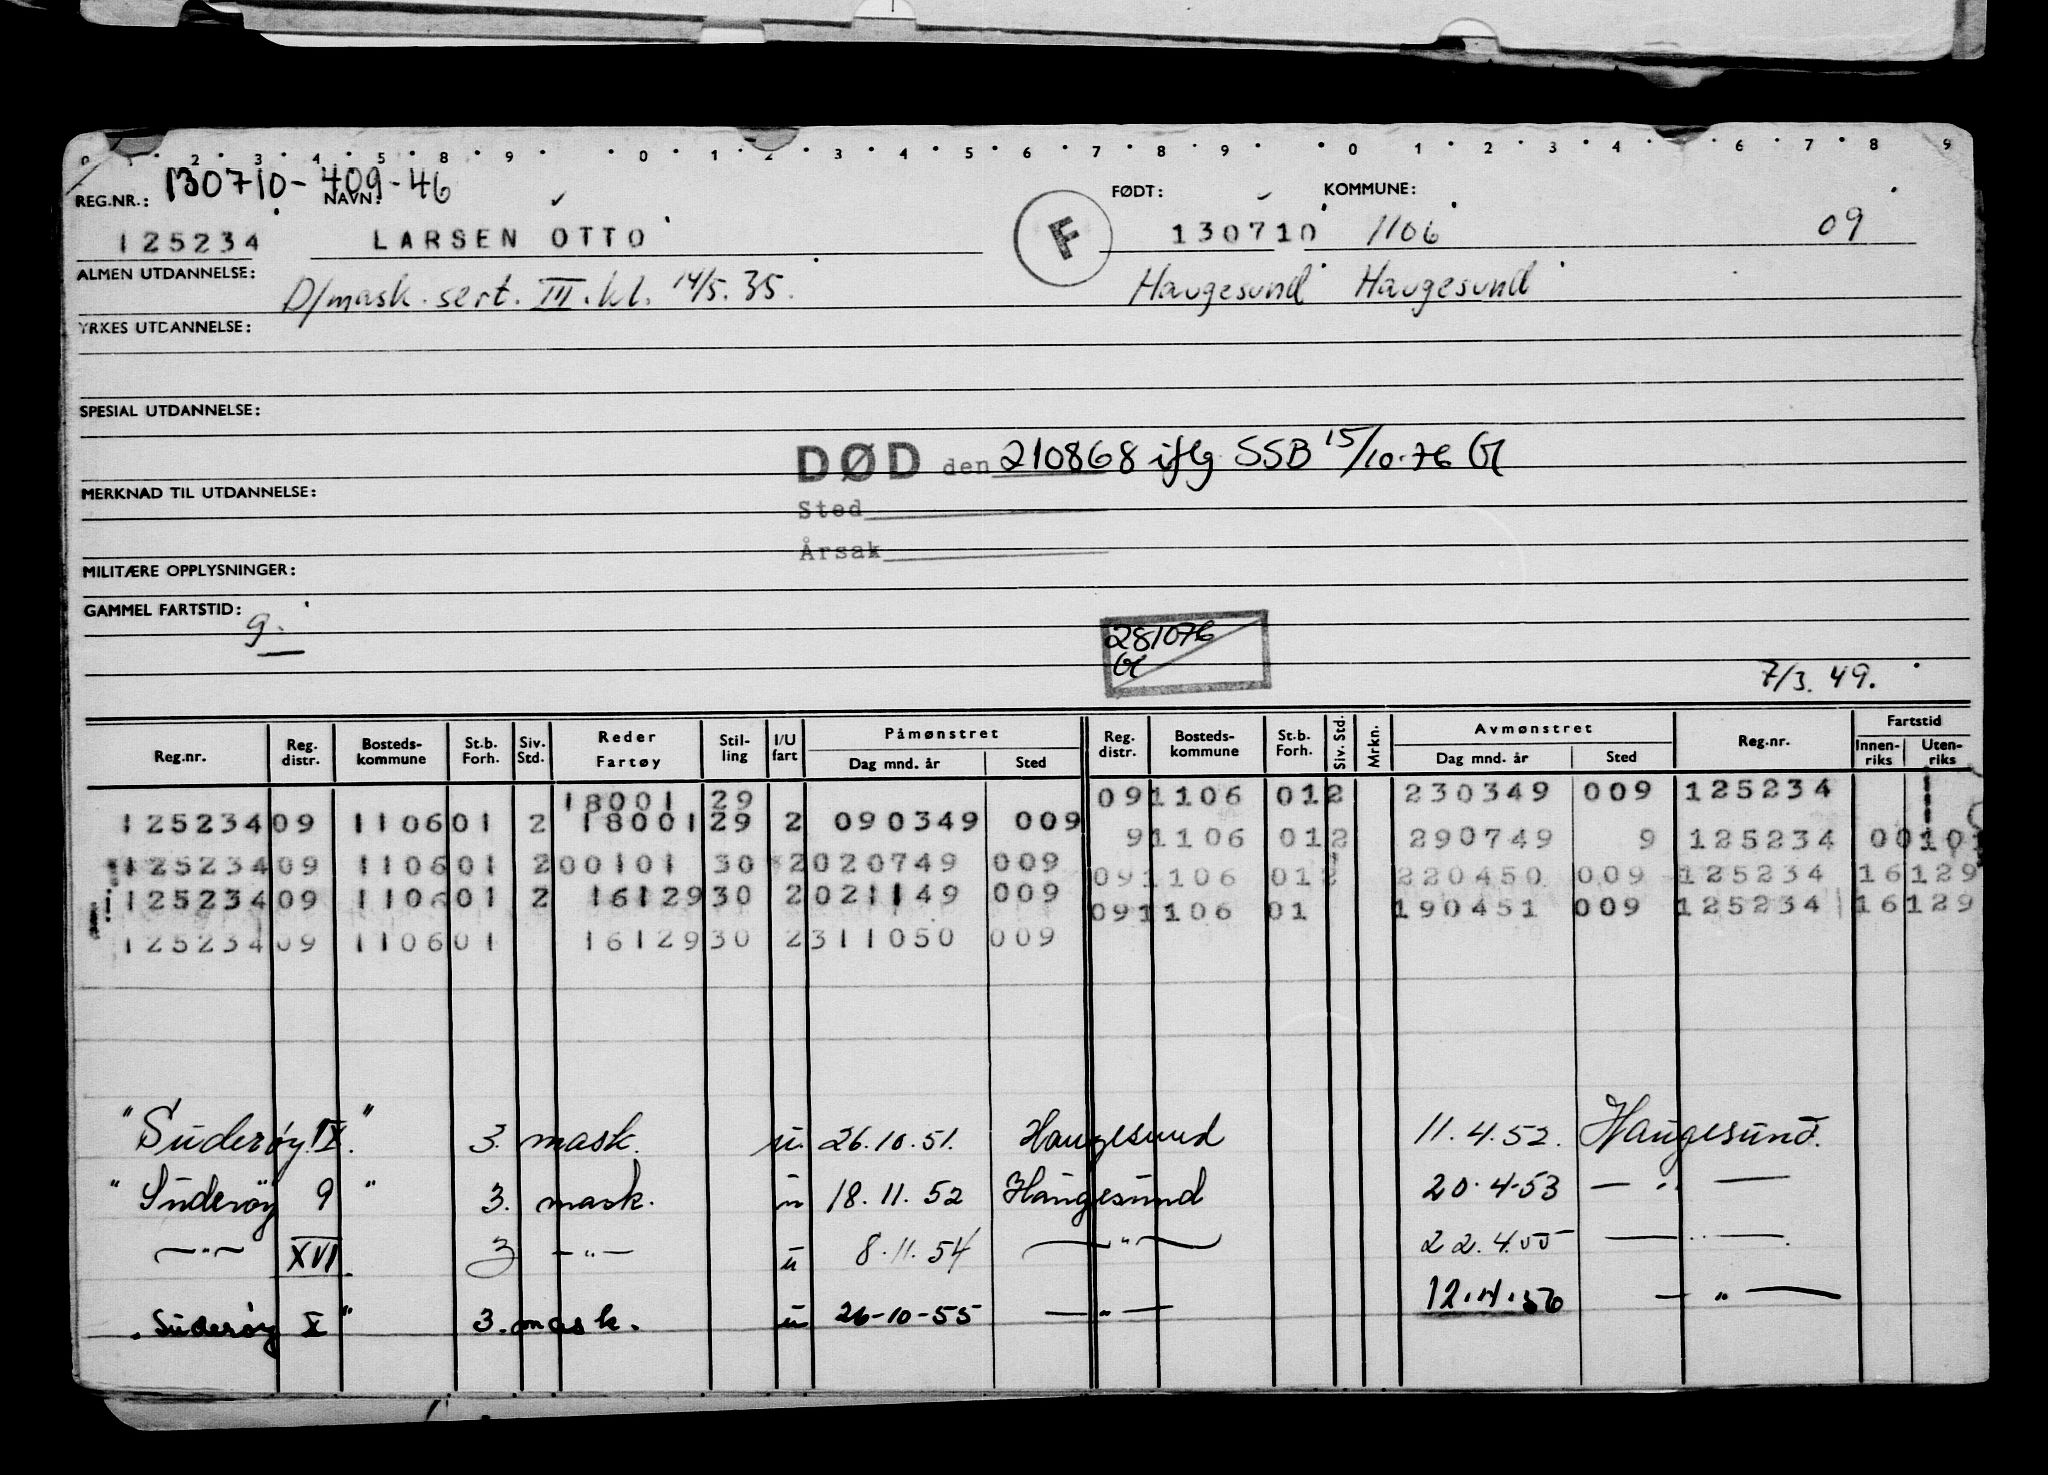 0 1 2 3 4 5 8 9 0 1 2 3 4 5 6 7 8 9 0 1 2 3 4 6 7 8 9
130710-409-46
REG.NR.: NAVN: FØDT: KOMMUNE:
125234 LARSEN OTTO F 130710 1106 09
ALMEN UTDANNELSE: D/mask. sert. III. kl. 14/5. 35. Haugesund Haugesund
YRKES UTDANNELSE:
SPESIAL UTDANNELSE:
DØD den 210868 iflg SSB 15/10-76
MERKNAD TIL UTDANNELSE:
Sted
Årsak
MILITÆRE OPPLYSNINGER:
GAMMEL FARTSTID: g.
281076
7/3. 49.
Reg.nr. Reg. distr. Bosteds-kommune St.b. Forh. Siv. Std. Reder Fartøy Stil-ling I/U fart Påmønstret Dag mnd. år Sted Reg. distr. Bosteds-kommune St.b. Forh. Siv. Std. Mrkn. Avmønstret Dag mnd. år Sted Reg.nr. Fartstid Innen-riks Uten-riks
18001 29 09 1106 01 2 230349 009 125234
125234 09 1106 01 2 18001 29 2 090349 009
9 1106 01 2 290749 9 125234 00 10
125234 09 1106 01 2 00101 30 2 020749 009
09 1106 01 2 220450 009 125234 16 129
125234 09 1106 01 2 16129 30 2 021149 009
09 1106 01 190451 009 125234 16 129
125234 09 1106 01 16129 30 2 311050 009
"Suderøy IX." 3. mask. u. 26.10.51. Haugesund 11.4.52. Haugesund.
"Suderøy 9" 3. mask. u 18.11.52 Haugesund 20.4-53 — " —
— " — XVI. 3 — " — u 8.11.54 — " — 22.4.55 — " —
"Suderøy X" 3. mask. u 26-10-55 — " — 12.4.56 — " —